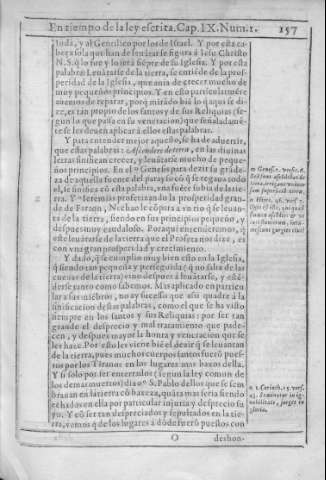 En tiempo de la ley escrita. Cap. IX. Num. 1. 157
Iuda, y al Gentilico por los de Israel. Y por esta ca
beza sola que han de leuãtar se figura a Iesu Christo
N.S. q̃ lo fue y lo serà siẽpre de su Iglesia. Y por esta
palabra Leuãtarse de la tierra, se entiẽde de la pros
peridad de la Iglesia, que auia de crecer mucho de
muy pequeños principios. Y en esto particularmẽte
auemos de reparar, porq̃ mirado biẽ lo q̃ aqui se di
ze, es tan propio de los santos y de sus Reliquias (se
gun lo que passa en su veneracion) que
se les deuen aplicar à ellos estas palabras.
Y para entender mejor aqueste, se ha de aduertir,
que estas palabras: Ascendere de terra, en las diuinas
letras sinifican crecer, y leuãtarse mucho de peque
ños principios. En el Genesis para dezir la grãde
za de aquella fuente del parayso cõ q̃ se regaua todo
el, se sinifica cõ esta palabra, q̃ subia de la tie
rra. Y Ieremias profetizan do la prosperidad gran
de de Faraon, Nechao le cõpara a vn rio q̃ se leuan
ta de la tierra, siendo en sus principios pequeño, y
despues muy caudaloso. Porque
el leuantarse de la tierra que el Profeta nos dize, es
con vna gran prosperidad y crecimiento.
Y dado, q̃ se cumplio muy bien esto en la Iglesia,
q̃ siendo tan pequeña y perseguida (q̃ no salia de las
cueuas de la tierra) vino despues à leuãtarse, y estẽ-
derse tanto como sabemos. Mas aplicado en particu
lar a sus miẽbros, no ay sucesso que assi quadre à la
sinificacion destas palabras, como el que se ha visto
siempre en los santos y sus Reliquias: por ser tan
grande el desprecio y mal tratamiento que pade-
cen, y despues mayor la honra y veneracion que se
les haze. Por esto les viene biẽ el dezir q̃ se leuantan
de la tierra, pues muchos cuerpos santos fuerõ pues-
tos por los Tiranos en los lugares mas baxos della.
Y si solo por ser enterrados (segun la ley comun de
los demas muertos) dixo S. Pablo dellos que se sem
brauan en la tierra cõ baxeza, quãta mas seria siendo
echados en ella por particular injuria y desprecio su
yo. Y cõ ser tan despreciados y sepultados en la tie-
rra, vemos q̃ de los lugares à dõde fuerõ puestos con
O deshon-
m Genes. 2. vers. 6.
Sed fons ascẽdebat de
terra, irrigans vniuer
sam superficiẽ terræ.
n Hiere. 46. vers. 7.
Quis est iste, qui quasi
flumen ascẽdit: & ve
luti fluuiorum, intu-
mescunt gurgites eius?
o 1. Corinth. 15. vers.
43. Seminatur in ig-
nobilitate, surget in
gloria.